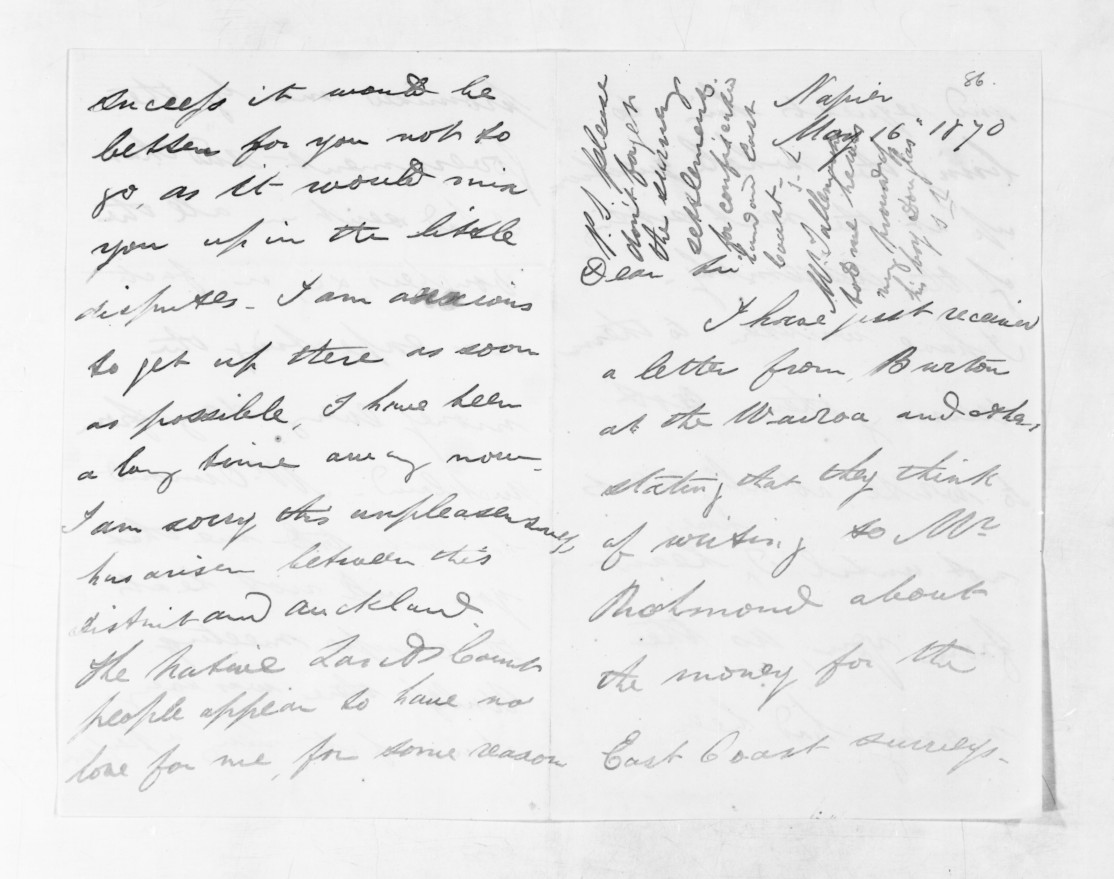 86.
Napier
May 16" 1870
P.S. please
don't forget
the survey
settlements.
for confiscated
land East
Coast.
told me he was
his boy Douglas
Dear Sir
I have just received
a letter from Burton
at the Wairoa and others,
stating that they think
of writing to Mr
Richmond about
the money for the
East Coast surveys.
success it would be
better for you not to
go, as it would mix
you up in the little
disputes. I am anxious
to get up there as soon
as possible, I have been
a long time away now.
I am sorry this unpleasantness
has arisen between this
district and Auckland.
The Native Lands Court
people appear to have no
love for me, for some reason